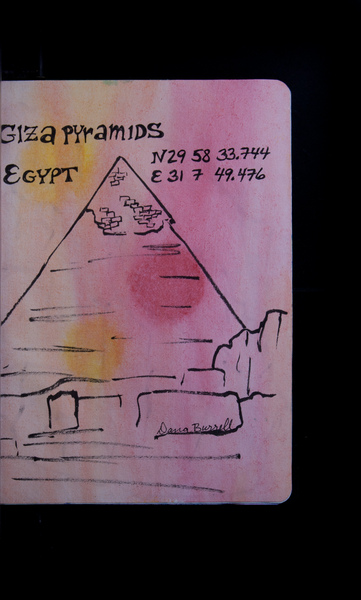 GIZA PYRAMIDS
N29 58 33.744
EGYPT
E 31 7 49.476
Dana Burrell